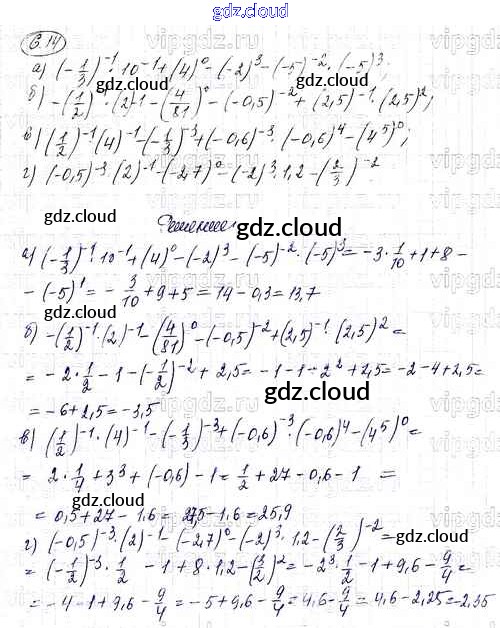 gdz.cloud
6.14
а) (-1/3)^-1 · 10^-1 + (4)^0 - (-2)^3 - (-5)^-2 · (-5)^3;
б) -(1/2)^-1 · (2)^-1 - (4/81)^0 - (-0,5)^-2 + (2,5)^-1 · (2,5)^2;
в) (1/2)^-1 (4)^-1 - (-1/3)^-3 + (-0,6)^-3 · (-0,6)^4 - (4^5)^0;
г) (-0,5)^-3 · (2)^-1 - (-2,7)^0 - (-2)^3 · 1,2 - (2/3)^-2
Решение
а) (-1/3)^-1 · 10^-1 + (4)^0 - (-2)^3 - (-5)^-2 · (-5)^3 = -3 · 1/10 + 1 + 8 -
- (-5)^1 = - 3/10 + 9 + 5 = 14 - 0,3 = 13,7
б) -(1/2)^-1 · (2)^-1 - (4/81)^0 - (-0,5)^-2 + (2,5)^-1 · (2,5)^2 =
= - 2 · 1/2 - 1 - (-1/2)^-2 + 2,5 = -1 - 1 - 2^2 + 2,5 = -2 - 4 + 2,5 =
= -6 + 2,5 = -3,5
в) (1/2)^-1 · (4)^-1 - (-1/3)^-3 + (-0,6)^-3 · (-0,6)^4 - (4^5)^0 =
= 2 · 1/4 + 3^3 + (-0,6) - 1 = 1/2 + 27 - 0,6 - 1 =
= 0,5 + 27 - 1,6 = 27,5 - 1,6 = 25,9
г) (-0,5)^-3 · (2)^-1 - (-2,7)^0 - (-2)^3 · 1,2 - (2/3)^-2 =
= (-1/2)^-3 · 1/2 - 1 + 8 · 1,2 - (3/2)^2 = -2^3 · 1/2 - 1 + 9,6 - 9/4 =
= -4 - 1 + 9,6 - 9/4 = -5 + 9,6 - 9/4 = 4,6 - 9/4 = 4,6 - 2,25 = -2,35